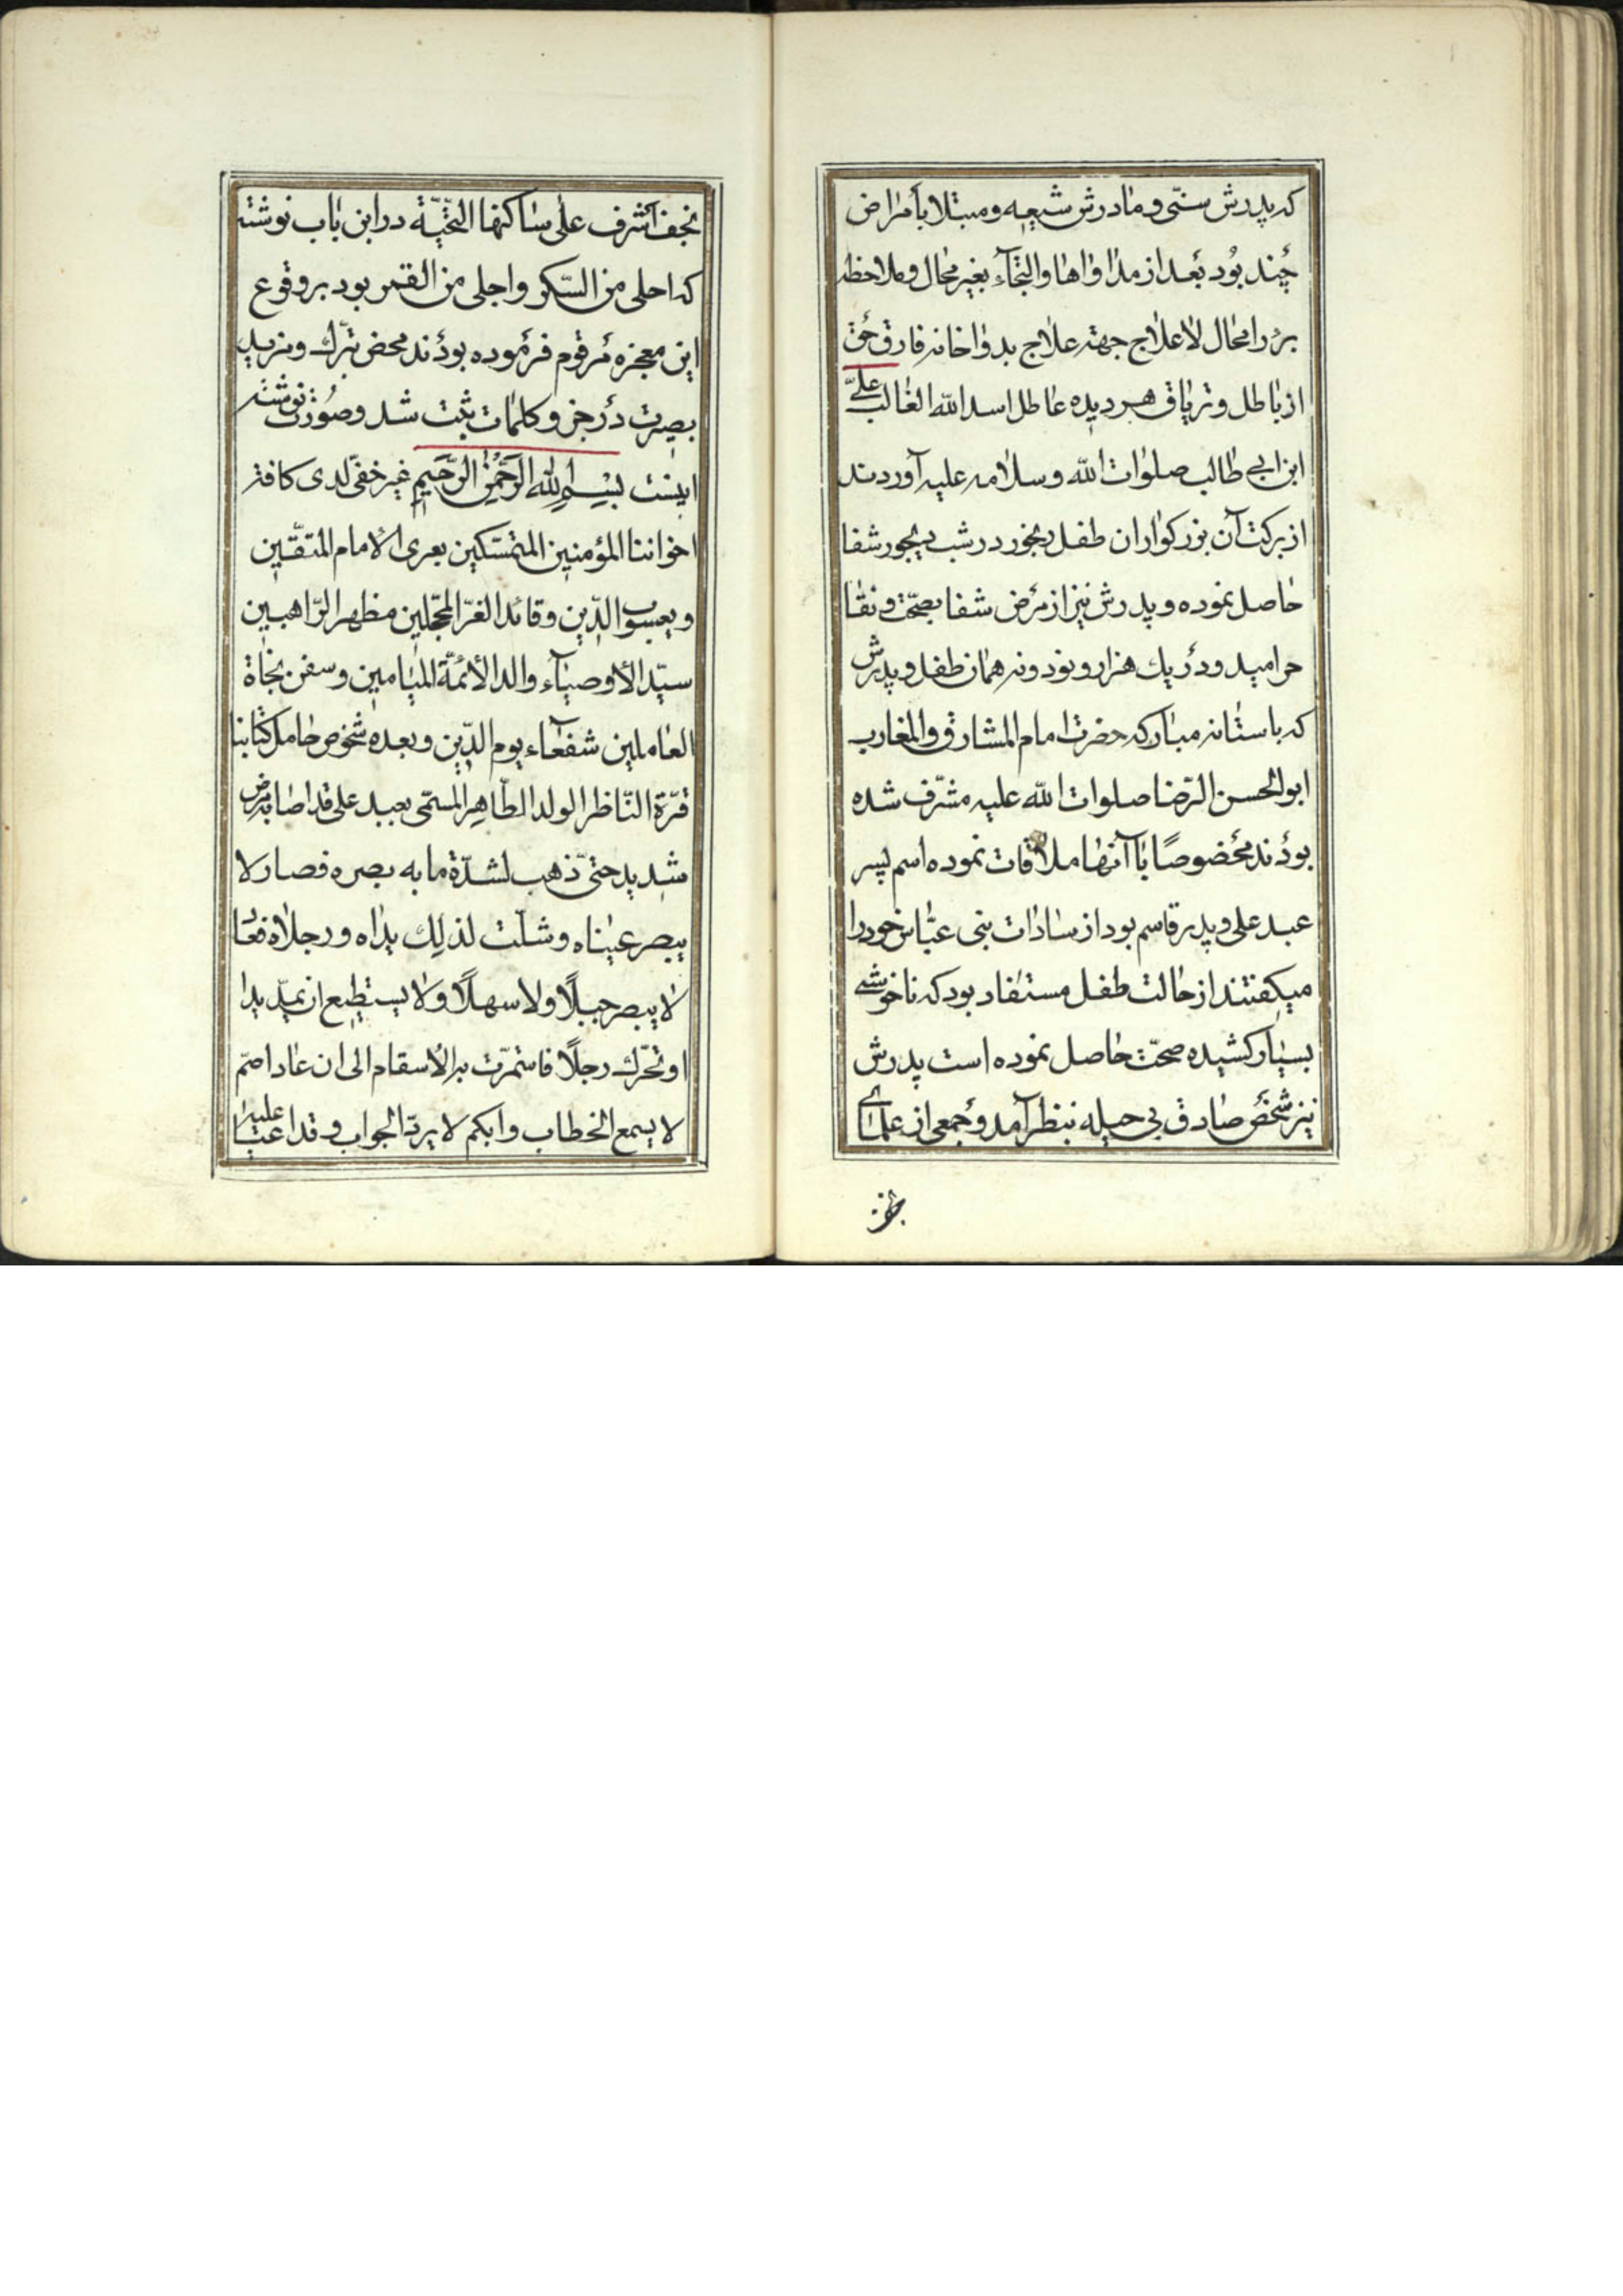 که پدرش سنّی و مادرش شیعه و مبتلا بأمراض
چند بود بعد از مداواها و التجآء بغیر محال و ملاحظه
برء را محال لاعلاج جهته علاج بدواخانه فارق حق
از باطل و تریاق هر دیده عاطل اسد الله الغالب علیّ
ابن ابی طالب صلوات الله و سلامه علیه آوردند
از برکت آن بزرکوار ان طفل رنجور در شب دیجور شفا
حاصل نموده و پدرش نیز از مرض شفا بصحّت و نقا
خرامید و در یك هزار و نود و نه همان طفل و پدرش
که باستانه مبارکه حضرت امام المشارق و المغارب
ابوالحسن الرّضا صلوات الله علیه مشرّف شده
بودند مخصوصًا با آنها ملاقات نموده اسم پسر
عبد علی و پدر قاسم بود از سادات بنی عبّاس خود را
میکفتند از حالت طفل مستفاد بود که ناخوشی
بسیار کشیده صحّت حاصل نموده است پدرش
نیز شخص صادق بی حیله بنظر آمد و جمعی از علمای
نجف
نجف اشرف علی ساکنها التّحیّة در این باب نوشته
که احلی من السّکر و اجلی من القمر بود بر وقوع
این معجزه مرقوم فرموده بودند محض تبرّك و مزید
بصیرت در جز و کلمات ثبت شد و صورت نوشته
اینست بسم الله الرّحمن الرّحیم غیر خفیّ لدی کافة
اخواننا المؤمنین المتمسّکین بعری الامام المتّقین
و یعسوب الدّین و قائد الغرّ المحجّلین مظهر الرّاهبین
سیّد الأوصیآء و الد الأئمّة المیامین و سفن نجاة
العاملین شفعآء یوم الدّین و بعده شخوص حامل کتابنا
قرّة النّاظر الولد الطّاهر المسمّی بعبد علی قد اصابه مرض
شدید حتّی ذهب لشدّة ما به بصره فصار لا
یبصر عیناه و شلّت لذلك یداه و رجلاه فعاد
لا یبصر جبلًا ولا سهلًا و لا یستطیع ان یمدّ یدا
او تحرّك رجلًا فاستمرّت به الأسقام الی ان عاد اصمّ
لا یسمع الخطاب و ابکم لا یردّ الجواب و قد اعیا علینا